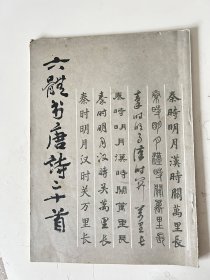 秦時明月漢時關萬里長
秦時明月漢時關萬里長
秦時明月漢時關萬里長
秦時明月漢時關萬里長
秦時明月漢時关萬里長
秦時明月汉时关万里長
六體书唐詩二十首